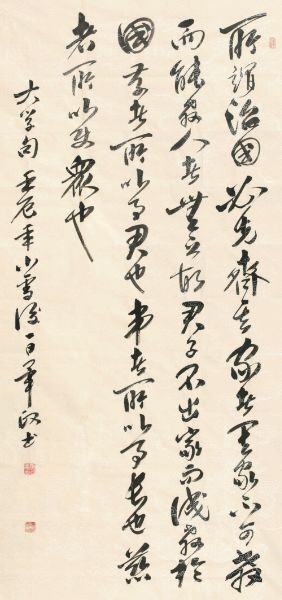 所謂治國必先齊其家者其家不可教
而能教人者無之故君子不出家而成教於
國孝者所以事君也弟者所以事長也慈
者所以使眾也
大学句 壬辰年小雪後一日 书